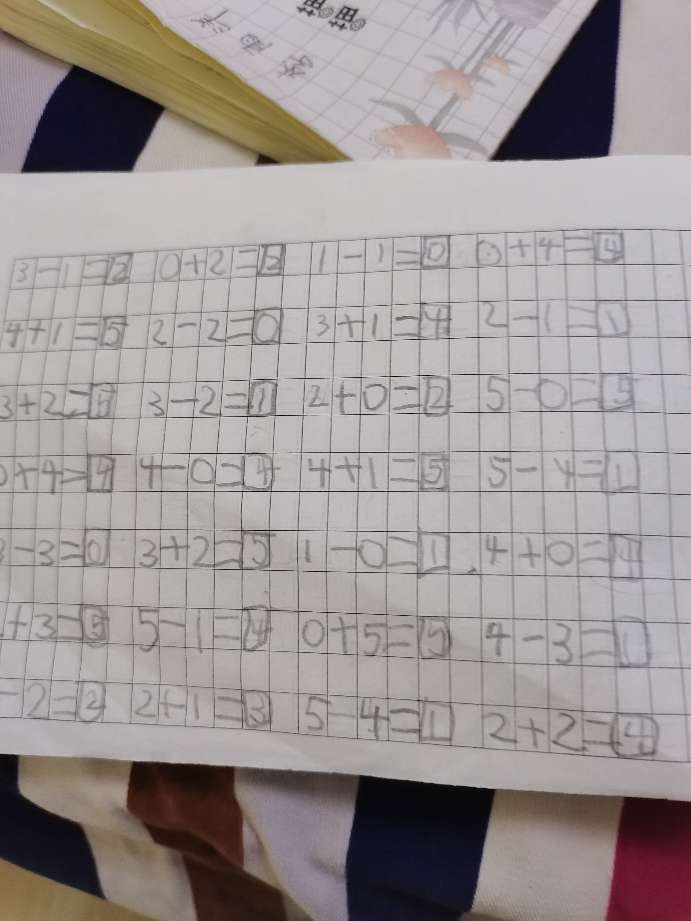 猫猫
3-1=2 0+2=2 1-1=0 0+4=4
4+1=5 2-2=0 3+1=4 2-1=1
3+2=5 3-2=1 2+0=2 5-0=5
0+4=4 4-0=4 4+1=5 5-4=1
3-3=0 3+2=5 1-0=1 4+0=4
+3=5 5-1=4 0+5=5 4-3=1
-2=2 2+1=3 5-4=1 2+2=4